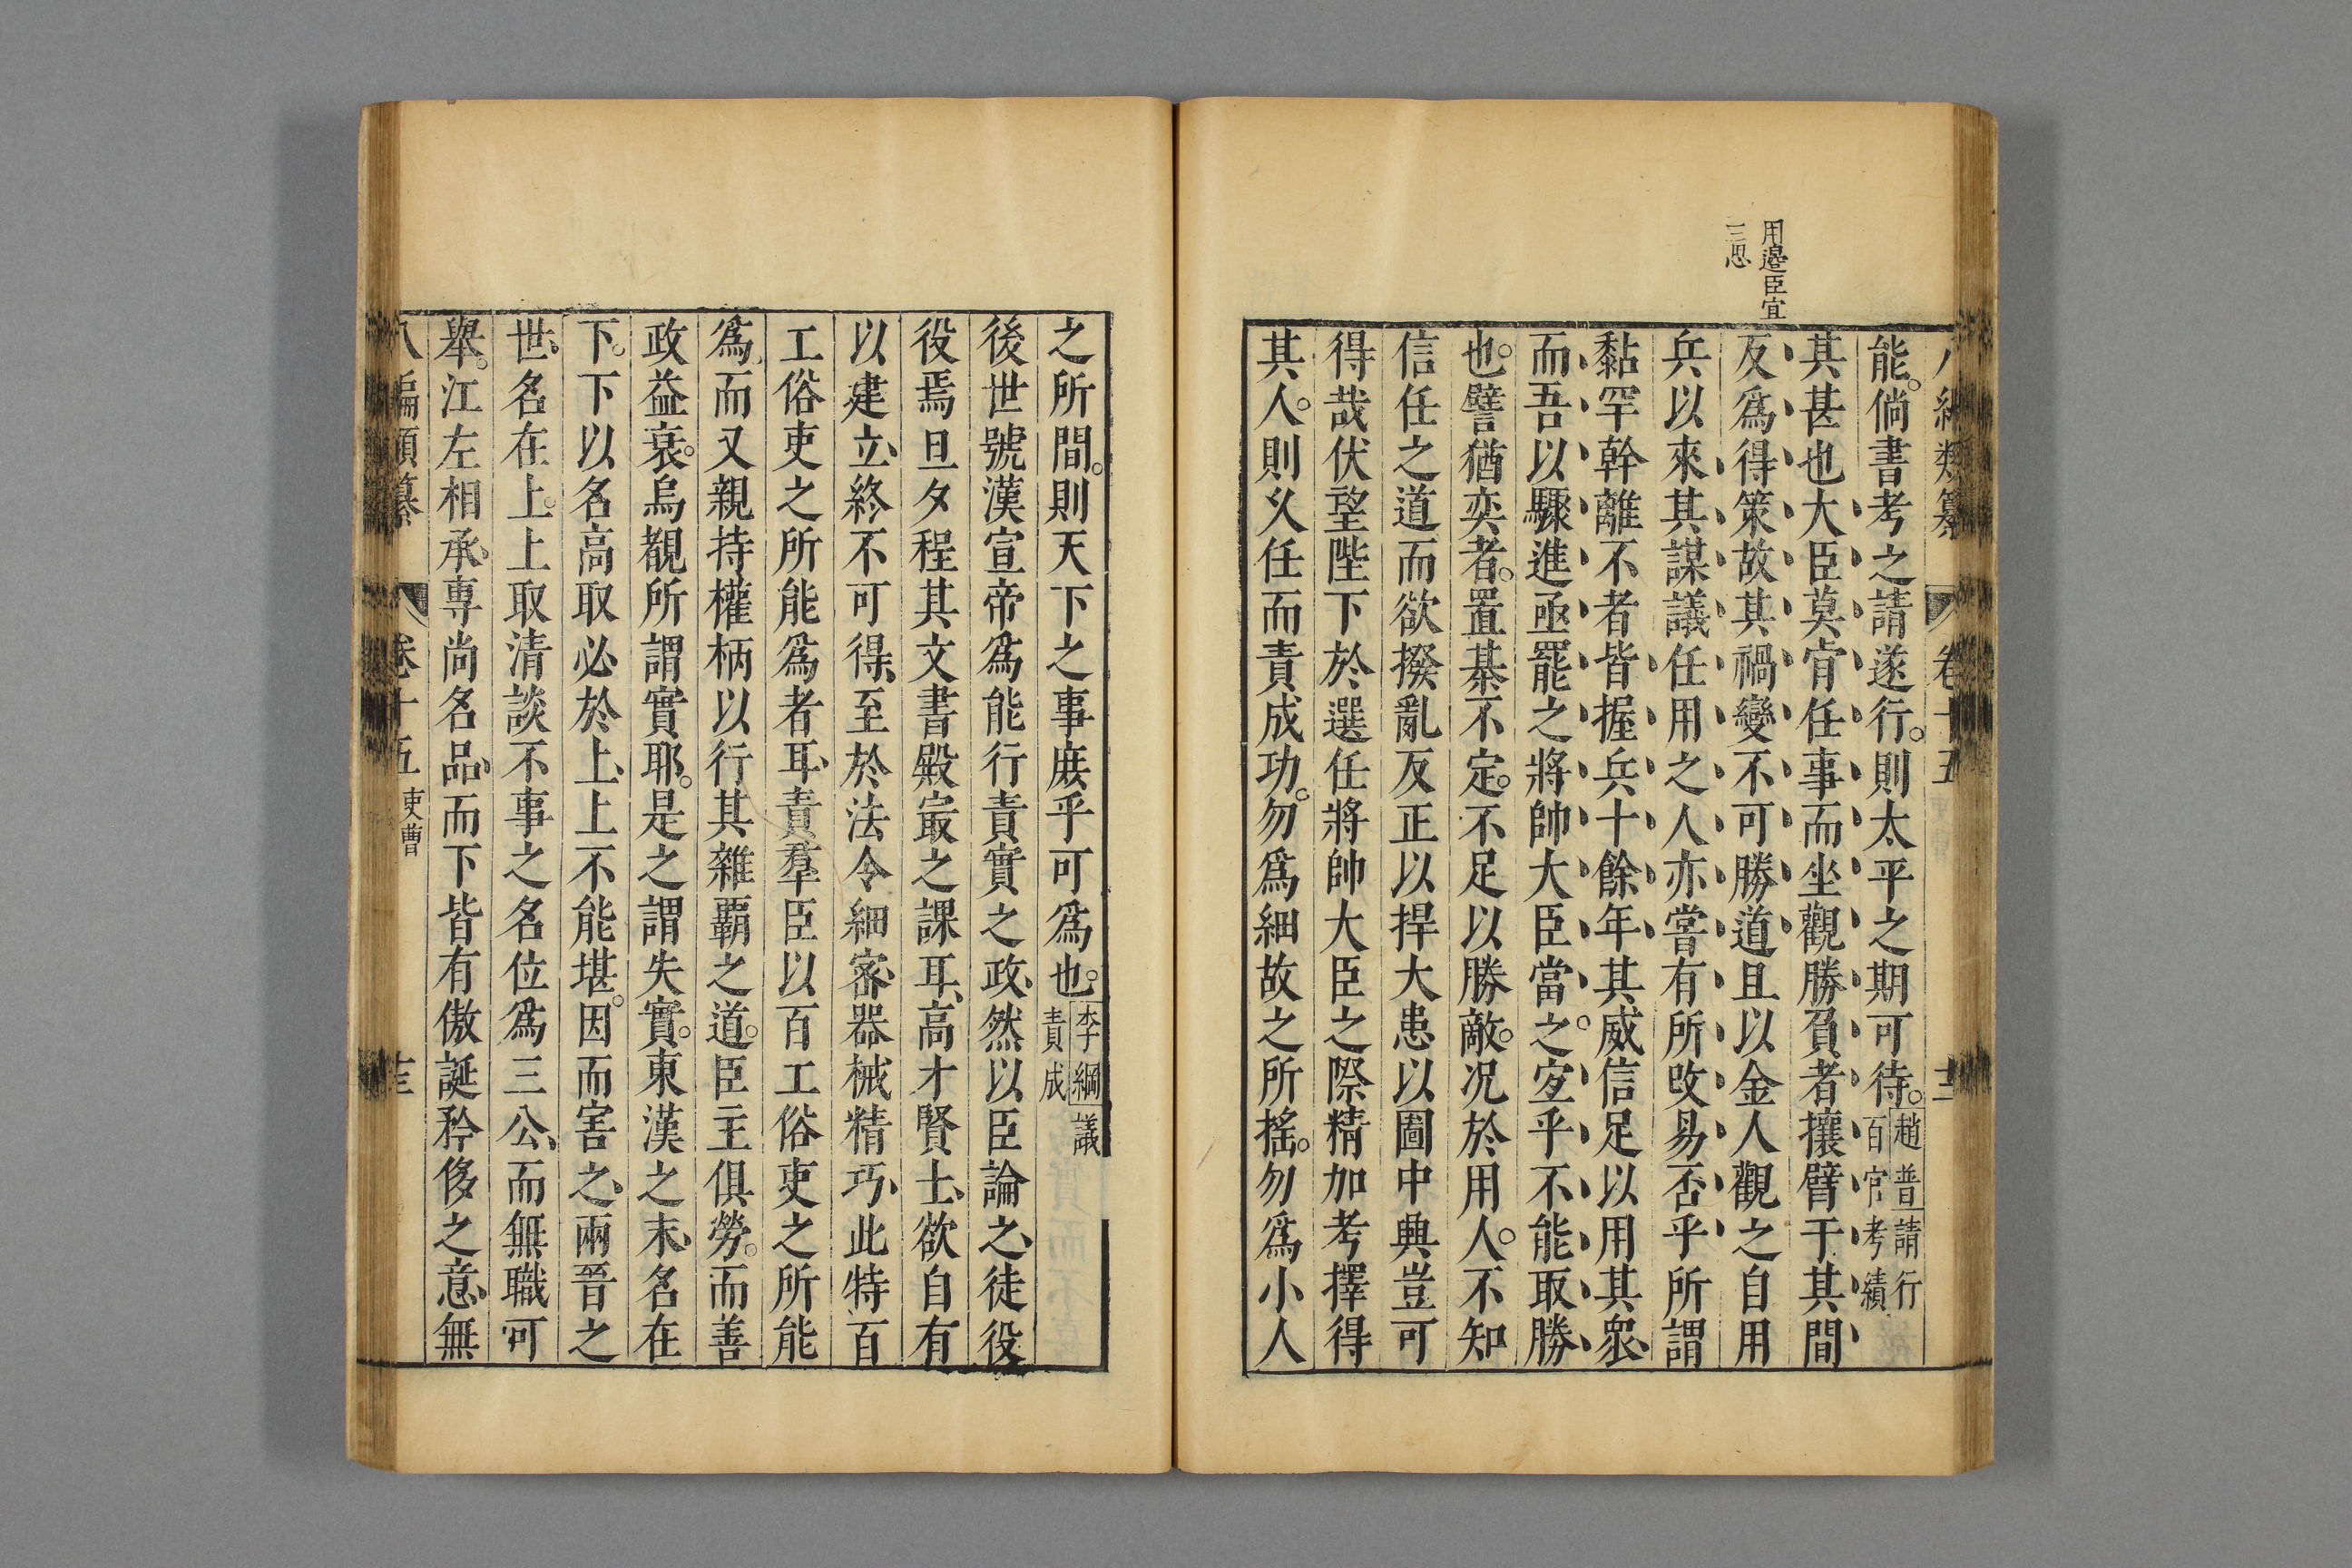 用邉臣宜
三思
能。倘書考之請遂行。則太平之期可待。趙普請行
百官考績
其甚也大臣莫肯任事而坐觀勝負者攘臂于其間
反爲得策故其禍變不可勝道且以金人觀之自用
兵以來其謀議任用之人亦嘗有所改易否乎所謂
黏罕幹離不者皆握兵十餘年其威信足以用其衆
而吾以驟進亟罷之將帥大臣當之宐乎不能取勝
也。譬猶奕者。置棊不定。不足以勝敵。况於用人。不知
信任之道而欲撥亂反正以捍大患以圖中興豈可
得哉伏望陛下於選任將帥大臣之際精加考擇得
其人。則乆任而責成功。勿爲細故之所搖。勿爲小人
之所間。則天下之事庻乎可爲也。李綱議
責成
後世號漢宣帝爲能行責實之政、然以臣論之、徒役
役焉旦夕程其文書殿㝡之課耳、高才賢士、欲自有
以建立、終不可得、至於法令細宻、器械精巧、此特百
工俗吏之所能爲者耳、責羣臣以百工俗吏之所能
爲、而又親持權柄以行其雜覇之道。臣主俱勞。而善
政益衰。烏覩所謂實耶。是之謂失實。東漢之末、名在
下。下以名高取必於上、上不能堪。因而害之、兩晉之
世、名在上。上取清談不事之名位爲三公、而無職可
舉。江左相承、專尚名品、而下皆有傲誕矜侈之意、無
八編類纂 卷十五 吏曹